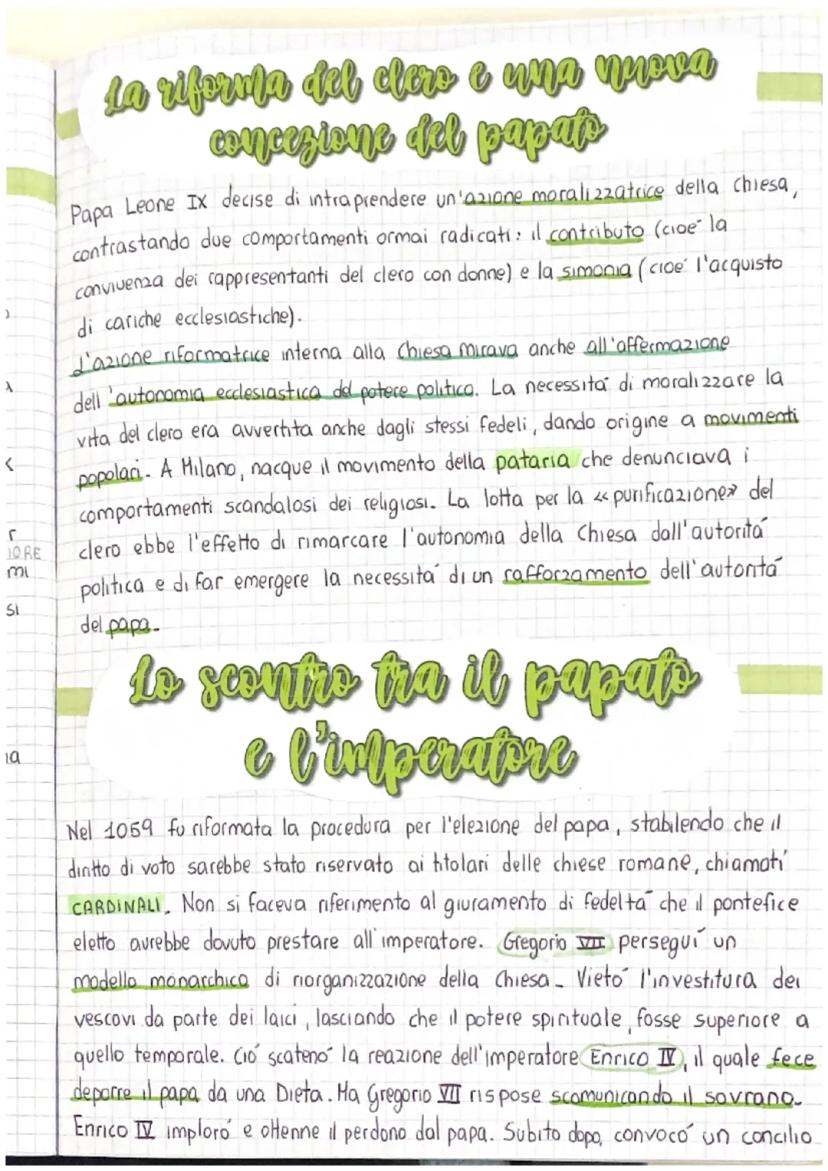 La riforma del clero e una nuova
concezione del papato
Papa Leone IX decise di intraprendere un'azione moralizzatrice della chiesa,
contrastando due comportamenti ormai radicati: il contributo (cioé la
convivenza dei rappresentanti del clero con donne) e la simonia (cioé l'acquisto
di cariche ecclesiastiche).
L'azione riformatrice interna alla Chiesa mirava anche all'affermazione
dell'autonomia ecclesiastica dal potere politico. La necessitá di moralizzare la
vita del clero era avvertita anche dagli stessi fedeli, dando origine a movimenti
popolari. A Milano, nacque il movimento della pataria che denunciava i
comportamenti scandalosi dei religiosi. La lotta per la «purificazione» del
clero ebbe l'effetto di rimarcare l'autonomia della Chiesa dall'autoritá
politica e di far emergere la necessitá di un rafforzamento dell'autoritá
del papa.
Lo scontro tra il papato
e l'imperatore
Nel 1059 fu riformata la procedura per l'elezione del papa, stabilendo che il
diritto di voto sarebbe stato riservato ai titolari delle chiese romane, chiamati
CARDINALI. Non si faceva riferimento al giuramento di fedeltá che il pontefice
eletto avrebbe dovuto prestare all'imperatore. Gregorio VII perseguí un
modello monarchico di riorganizzazione della Chiesa. Vietó l'investitura dei
vescovi da parte dei laici, lasciando che il potere spirituale fosse superiore a
quello temporale. Ció scatenó la reazione dell'imperatore Enrico IV, il quale fece
deporre il papa da una Dieta. Ma Gregorio VII rispose scomunicando il sovrano.
Enrico IV imploró e ottenne il perdono dal papa. Subito dopo, convocó un concilio
r
IORE
mi
si
na